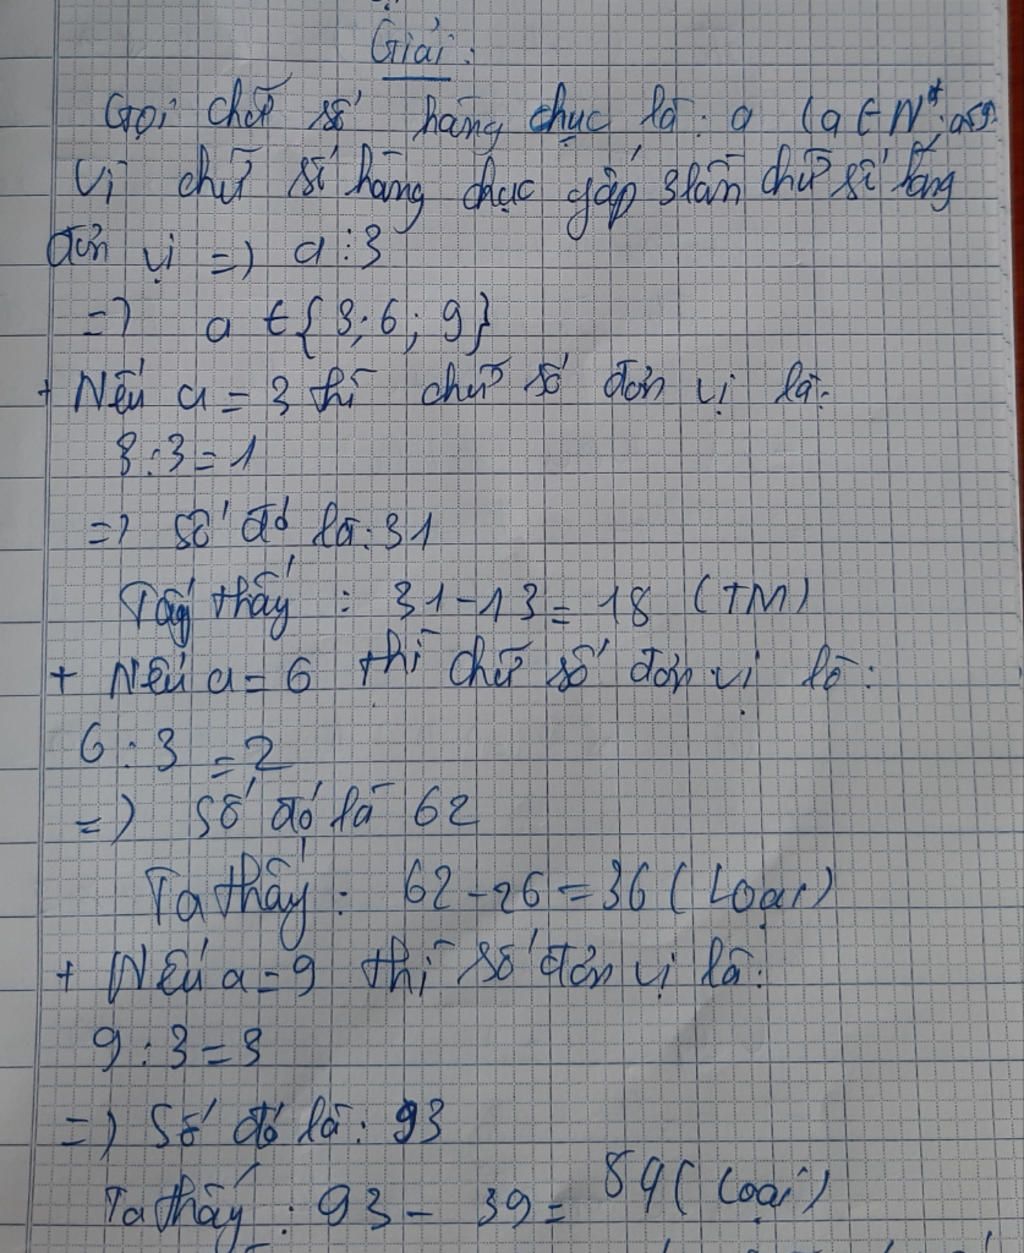 Giải:
Gọi chữ số hàng chục là: a (a ∈ N*; a≤9
Vì chữ số hàng chục gấp 3 lần chữ số hàng
đơn vị => a ⋮ 3
=> a ∈ {3; 6; 9}
+ Nếu a = 3 thì chữ số đơn vị là:
3 : 3 = 1
=> số đó là: 31
thấy : 31 - 13 = 18 (TM)
+ Nếu a = 6 thì chữ số đơn vị là:
6 : 3 = 2
=> Số đó là 62
Ta thấy: 62 - 26 = 36 (Loại)
+ Nếu a = 9 thì số đơn vị là:
9 : 3 = 3
=> Số đó là: 93
Ta thấy : 93 - 39 = 54 (Loại)